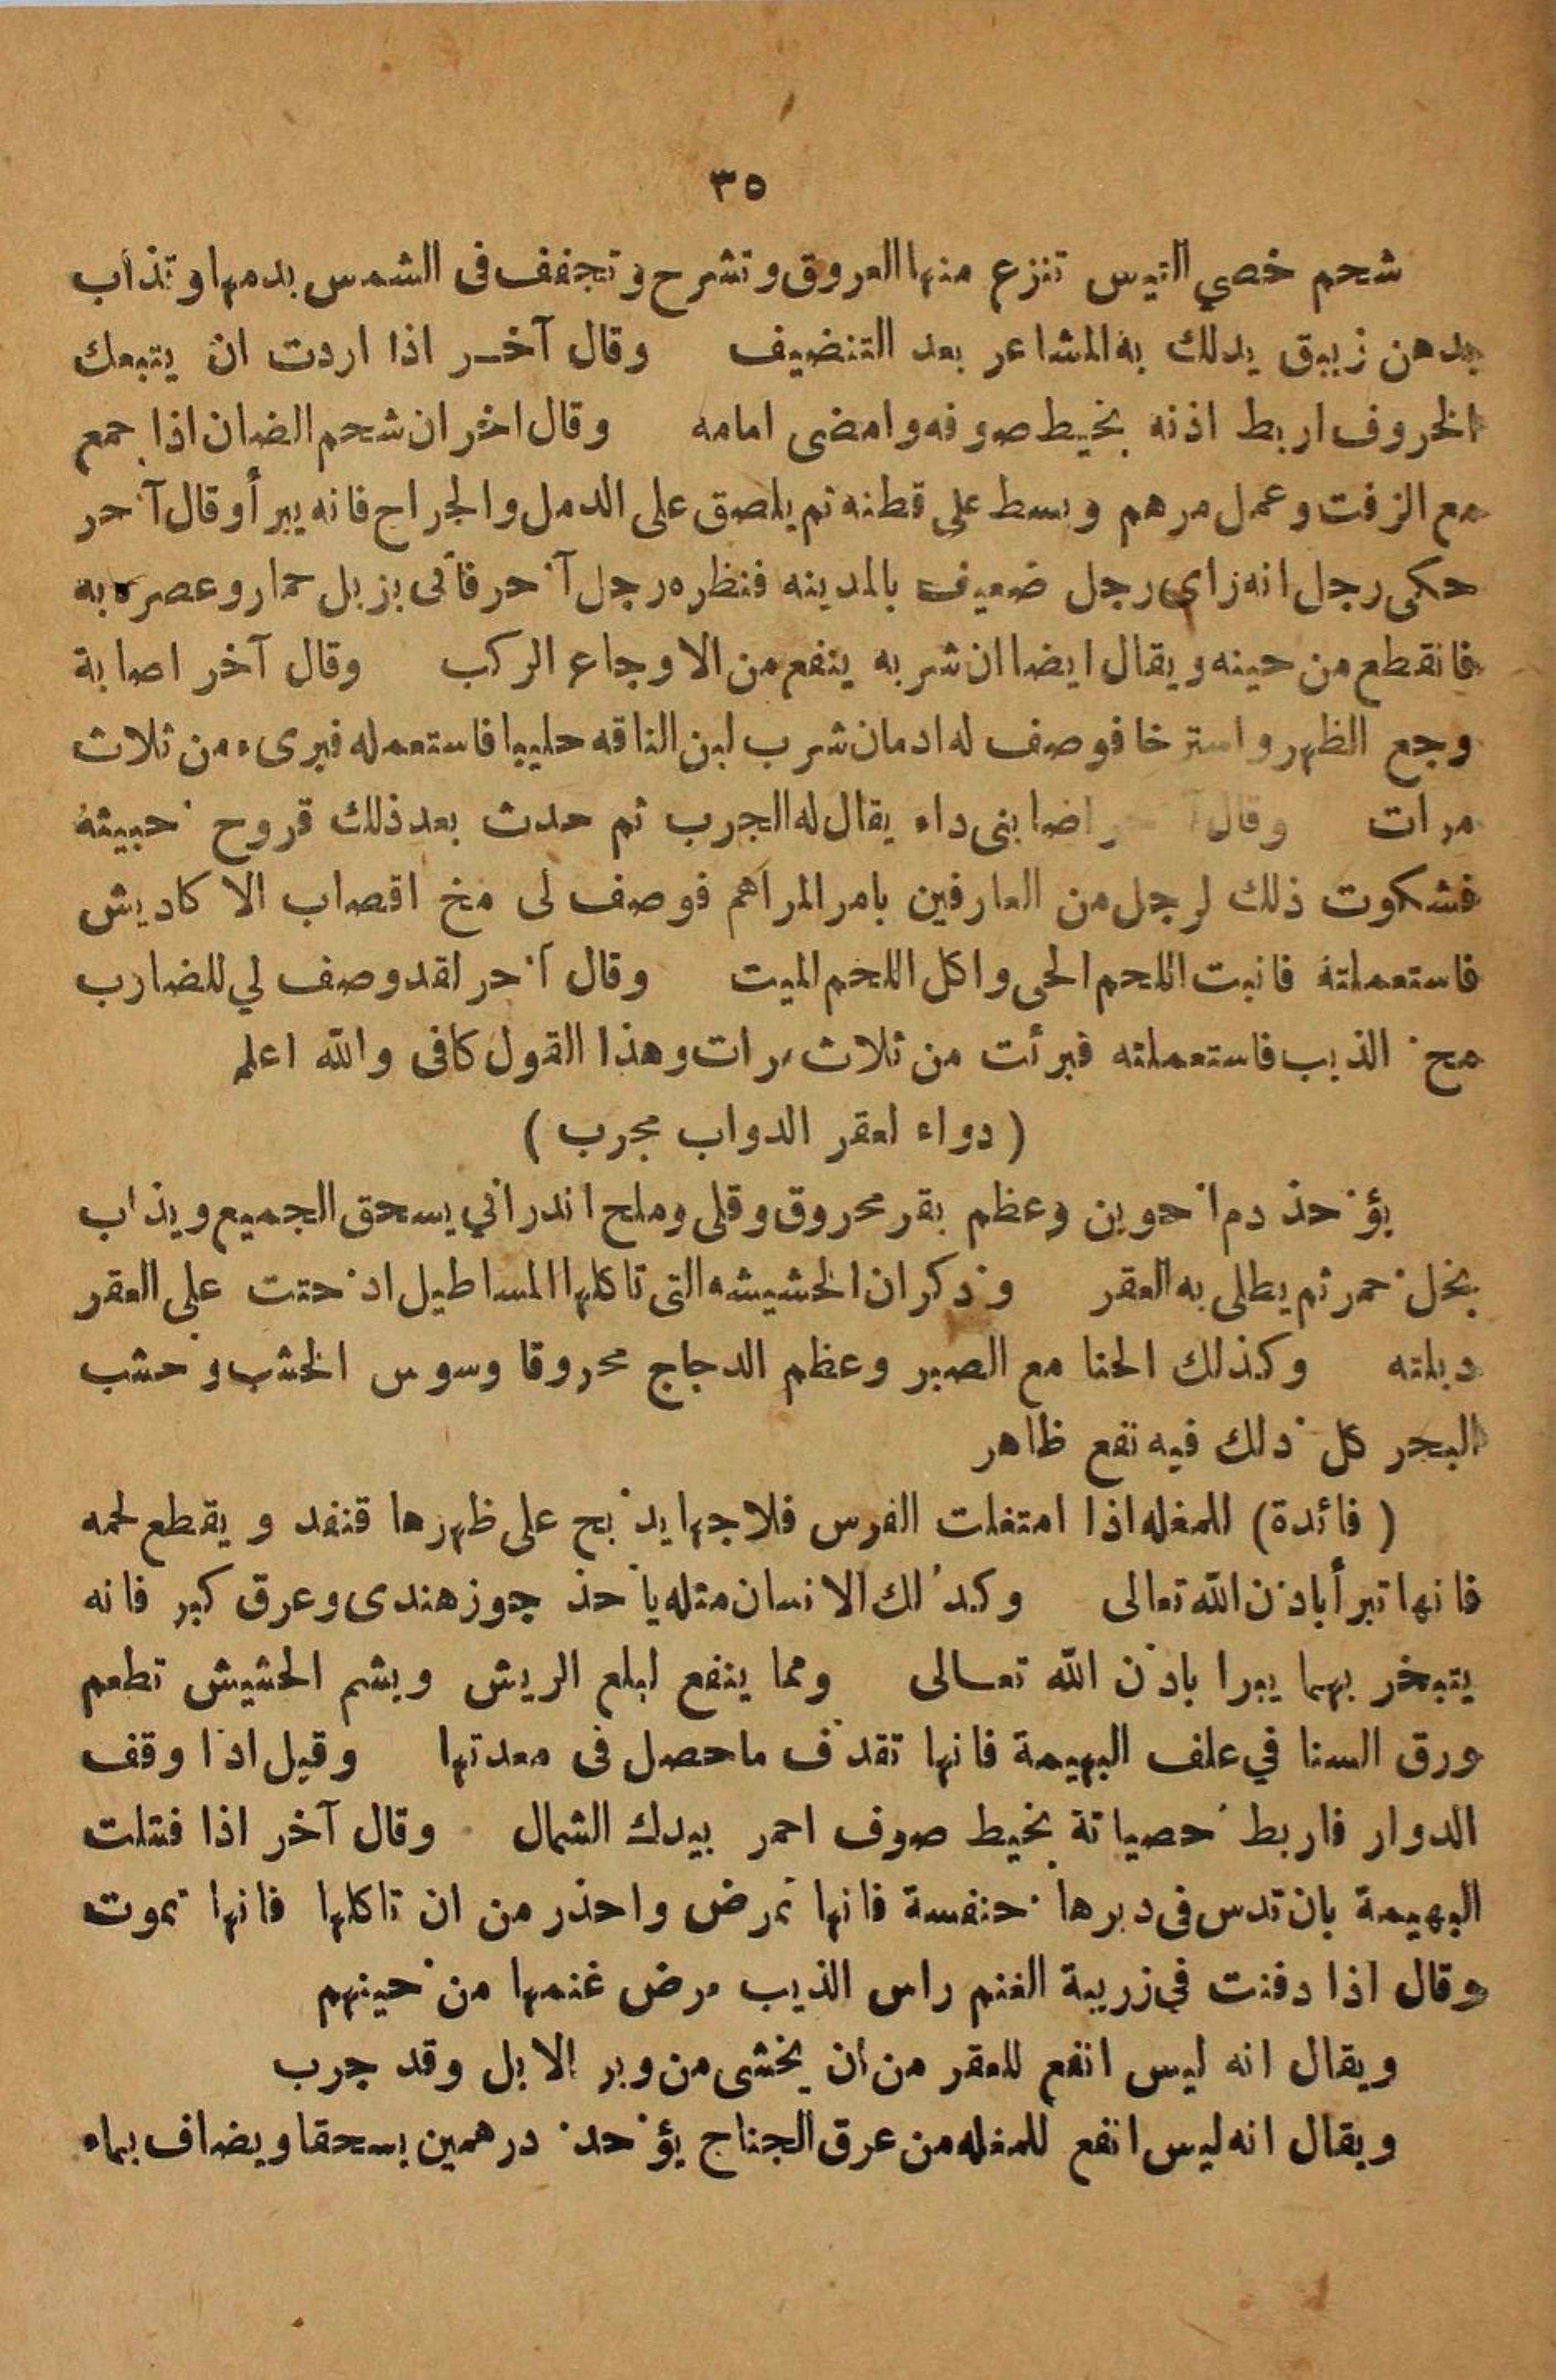 ٣٥
شحم خصي التيس تنزع منها العروق وتشرح وتجفف فى الشمس بدمها وتذاب
بدهن زيبق يدلك به المشاعر بعد التنضيف وقال آخر اذا اردت ان يتبعك
الخروف اربط اذنه بخيط صوفه وامضى امامه وقال اخر ان شحم الضان اذا جمع
مع الزفت وعمل مرهم وبسط على قطنه ثم يلصق على الدمل والجراح فانه يبرأ وقال آخر
حكى رجل انه راى رجل ضعيف بالمدينه فنظره رجل آخر فأتى بزبل حمار وعصره به
فانقطع من حينه ويقال ايضا ان شربه ينفع من الاوجاع الركب وقال آخر اصابة
وجع الظهر واسترخا فوصف له ادمان شرب لبن الناقه حليبا فاستعمله فبرىء من ثلاث
مرات وقال اضابنى داء يقال له الجرب ثم حدث بعد ذلك قروح خبيثة
فشكوت ذلك لرجل من العارفين بامر المراهم فوصف لى مخ اقصاب الاكاديش
فاستعملتة فانبت اللحم الحى واكل اللحم الميت وقال آخر لقد وصف لي للضارب
مخ الذيب فاستعملته فبرئت من ثلاث مرات وهذا القول كافى والله اعلم
(دواء لعقر الدواب مجرب)
يؤخذ دم اخوين وعظم بقر محروق وقلى وملح اندراني يسحق الجميع ويذاب
بخل خمر ثم يطلى به العقر وذكر ان الخشيشه التى تاكلها المساطيل اذ ختت على العقر
دبلته وكذلك الحنا مع الصبر وعظم الدجاج محروقا وسوس الخشب وخشب
البحر كل ذلك فيه نفع ظاهر
(فائدة) للمغله اذا امتغلت الفرس فلاجها يذبح على ظهرها قنفد ويقطع لحمه
فانها تبرأ باذن الله تعالى وكذلك الانسان مثله ياخذ جوز هندى وعرق كبر فانه
يتبخر بهما يبرا باذن الله تعالى ومما ينفع لبلع الريش ويشم الحشيش تطعم
ورق السنا في علف البهيمة فانها تقذف ماحصل فى معدتها وقيل اذا وقف
الدوار فاربط خصياتة بخيط صوف احمر بيدك الشمال وقال آخر اذا فتلت
البهيمة بان تدس فى دبرها خنفسة فانها تمرض واحذر من ان تاكلها فانها تموت
وقال اذا دفنت في زريبة الغنم راس الذيب مرض غنمها من حينهم
ويقال انه ليس انفع للعقر من ان يخشى من وبر الابل وقد جرب
ويقال انه ليس انفع للمغله من عرق الجناح يؤخذ درهمين يسحقا ويضاف بماء